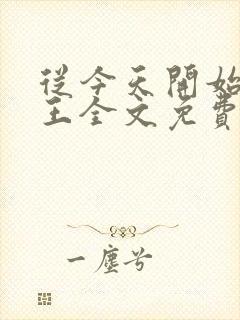 從今天開始
王全文免費
一塵兮